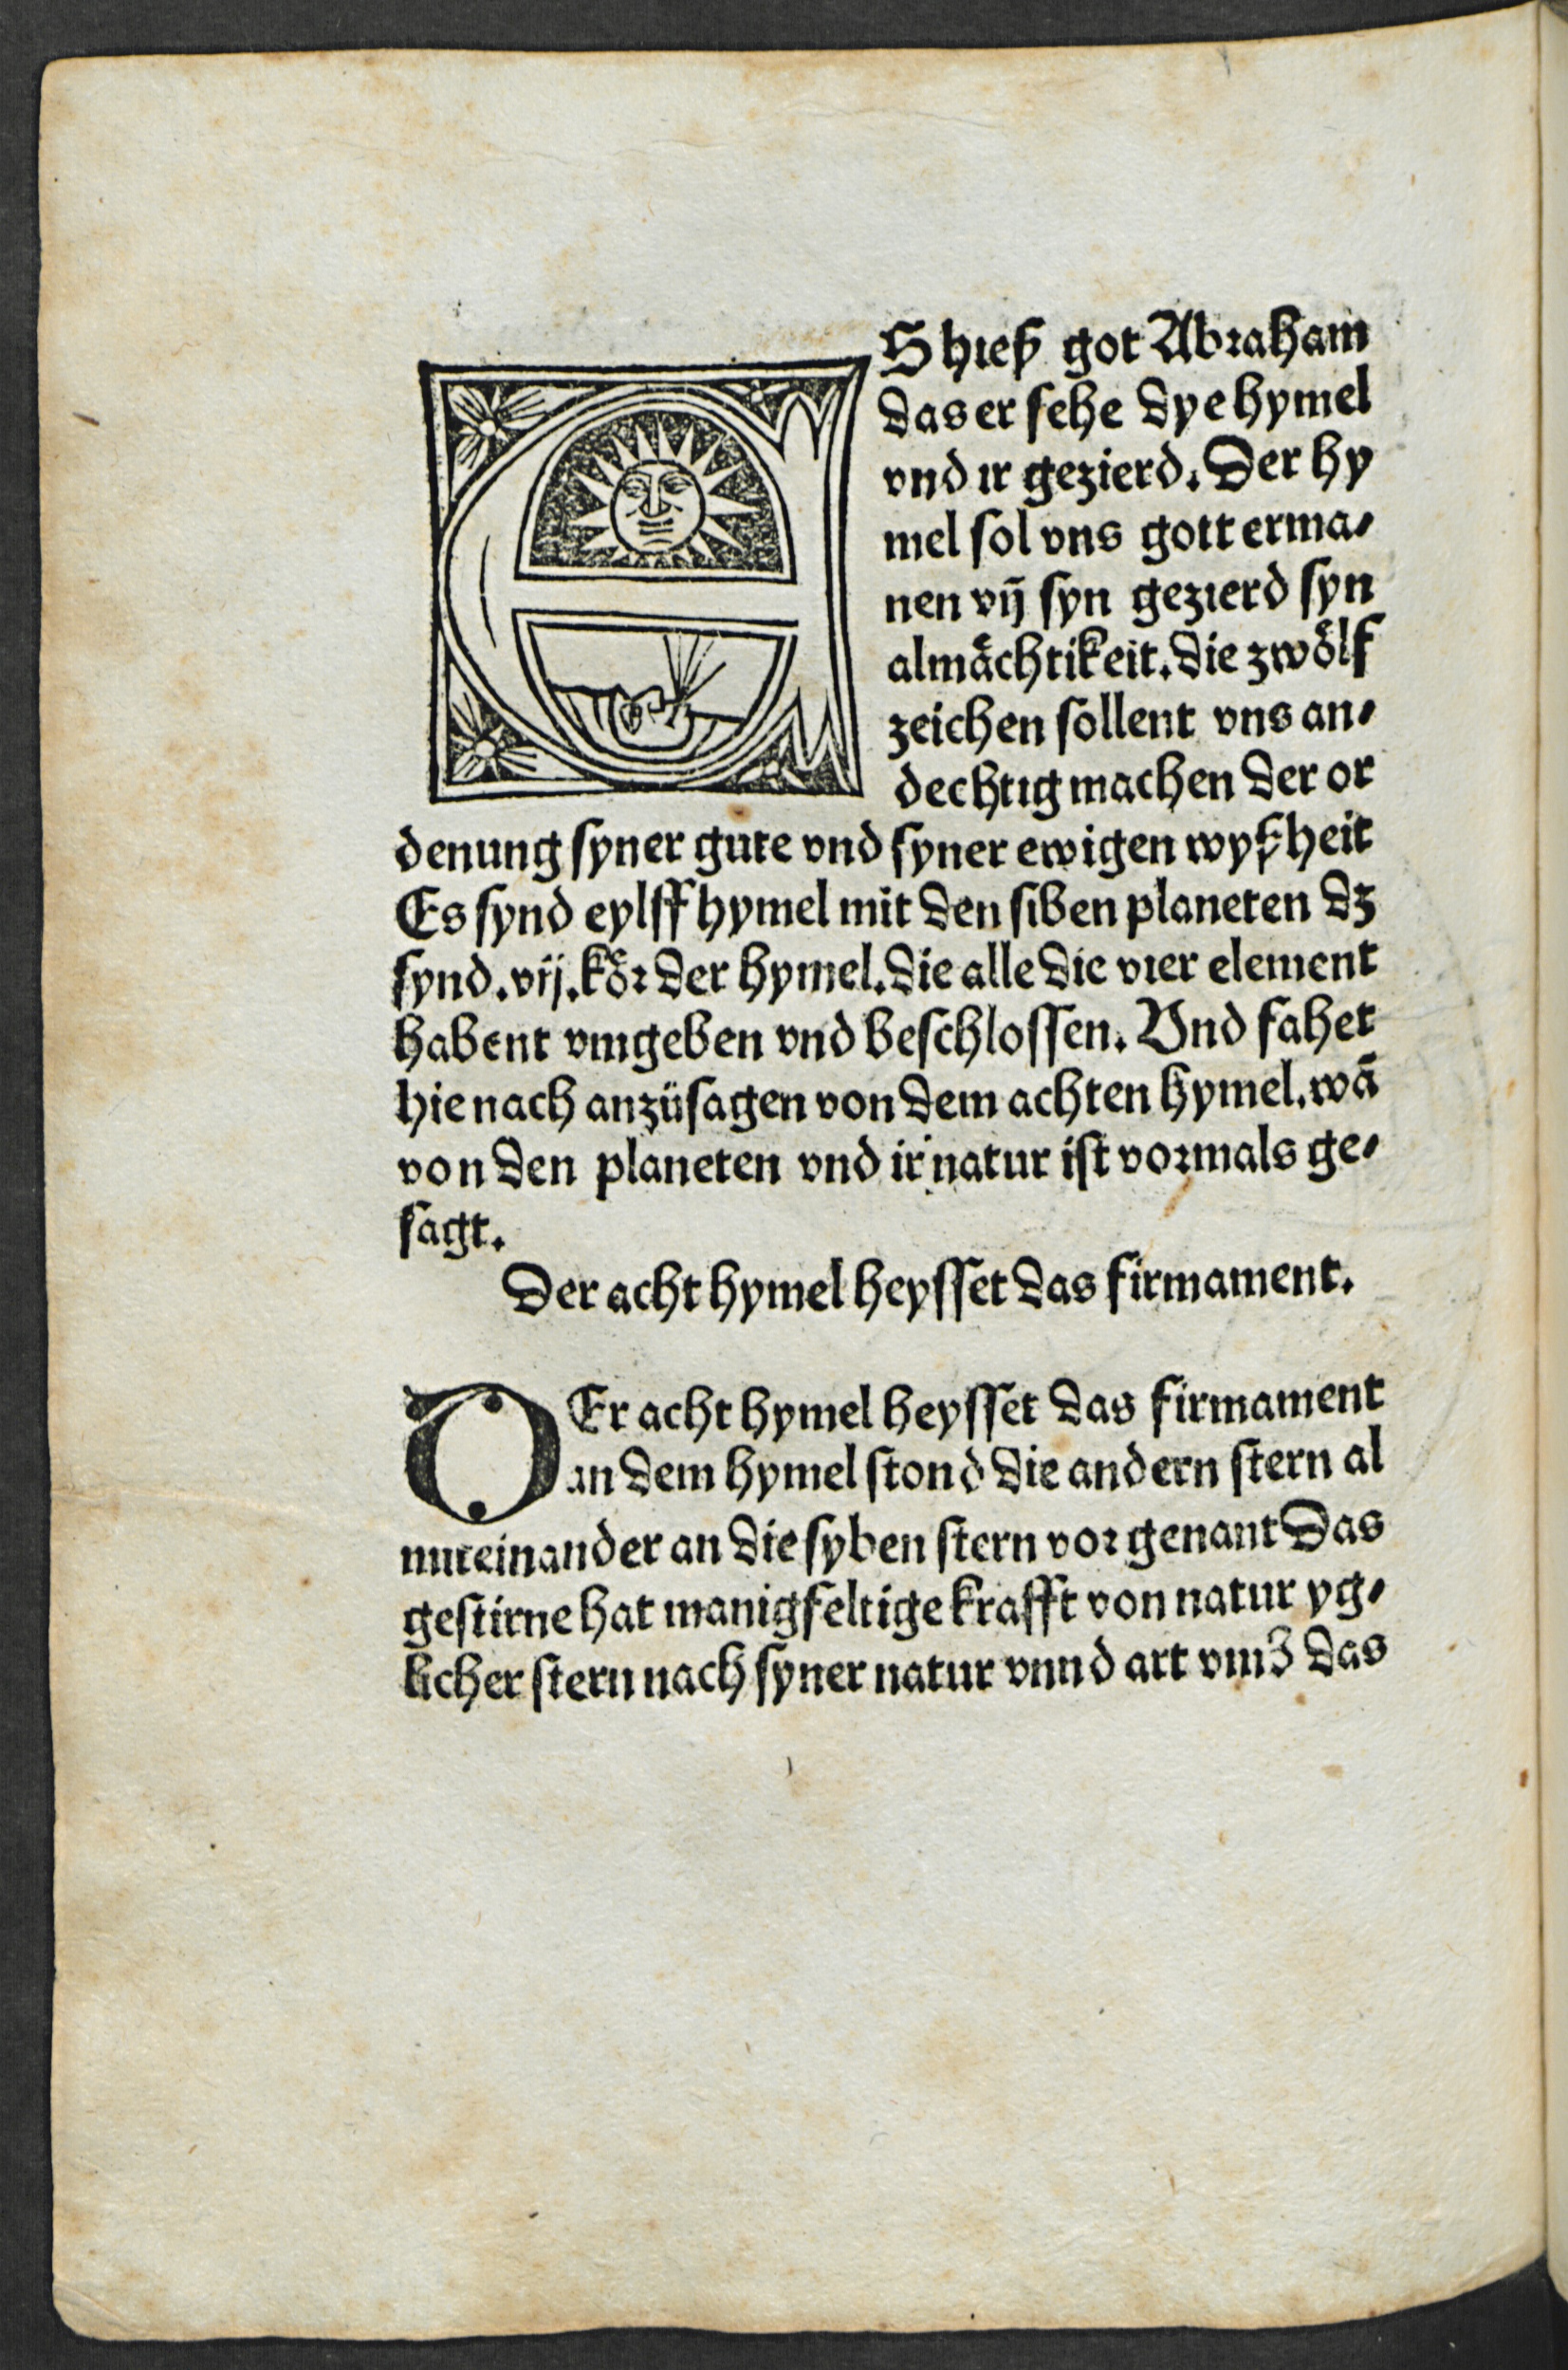 ES hieß got Abraham
das er sehe dye hymel
vnd ir gezierd. Der hy
mel sol vns gott erma⸗
nen vñ syn gezierd syn
almåchtikeit. die zwölf
zeichen sollent vns an⸗
dechtig machen der or
denung syner gute vnd syner ewigen wyßheit
Es synd eylff hymel mit den siben planeten dz
synd .vij. kör der hymel. die alle die vier element
habent vmgeben vnd beschlossen. Vnd fahet
hie nach anzüsagen von dem achten hymel. wā
von den planeten vnd ir natur ist vormals ge⸗
sagt.
Der acht hymel heysset das firmament.
DEr acht hymel heysset das firmament
an dem hymel stond die andern stern al
miteinander an die syben stern vor genant Das
gestirne hat manigfeltige krafft von natur yg⸗
licher stern nach syner natur vnnd art vmb das